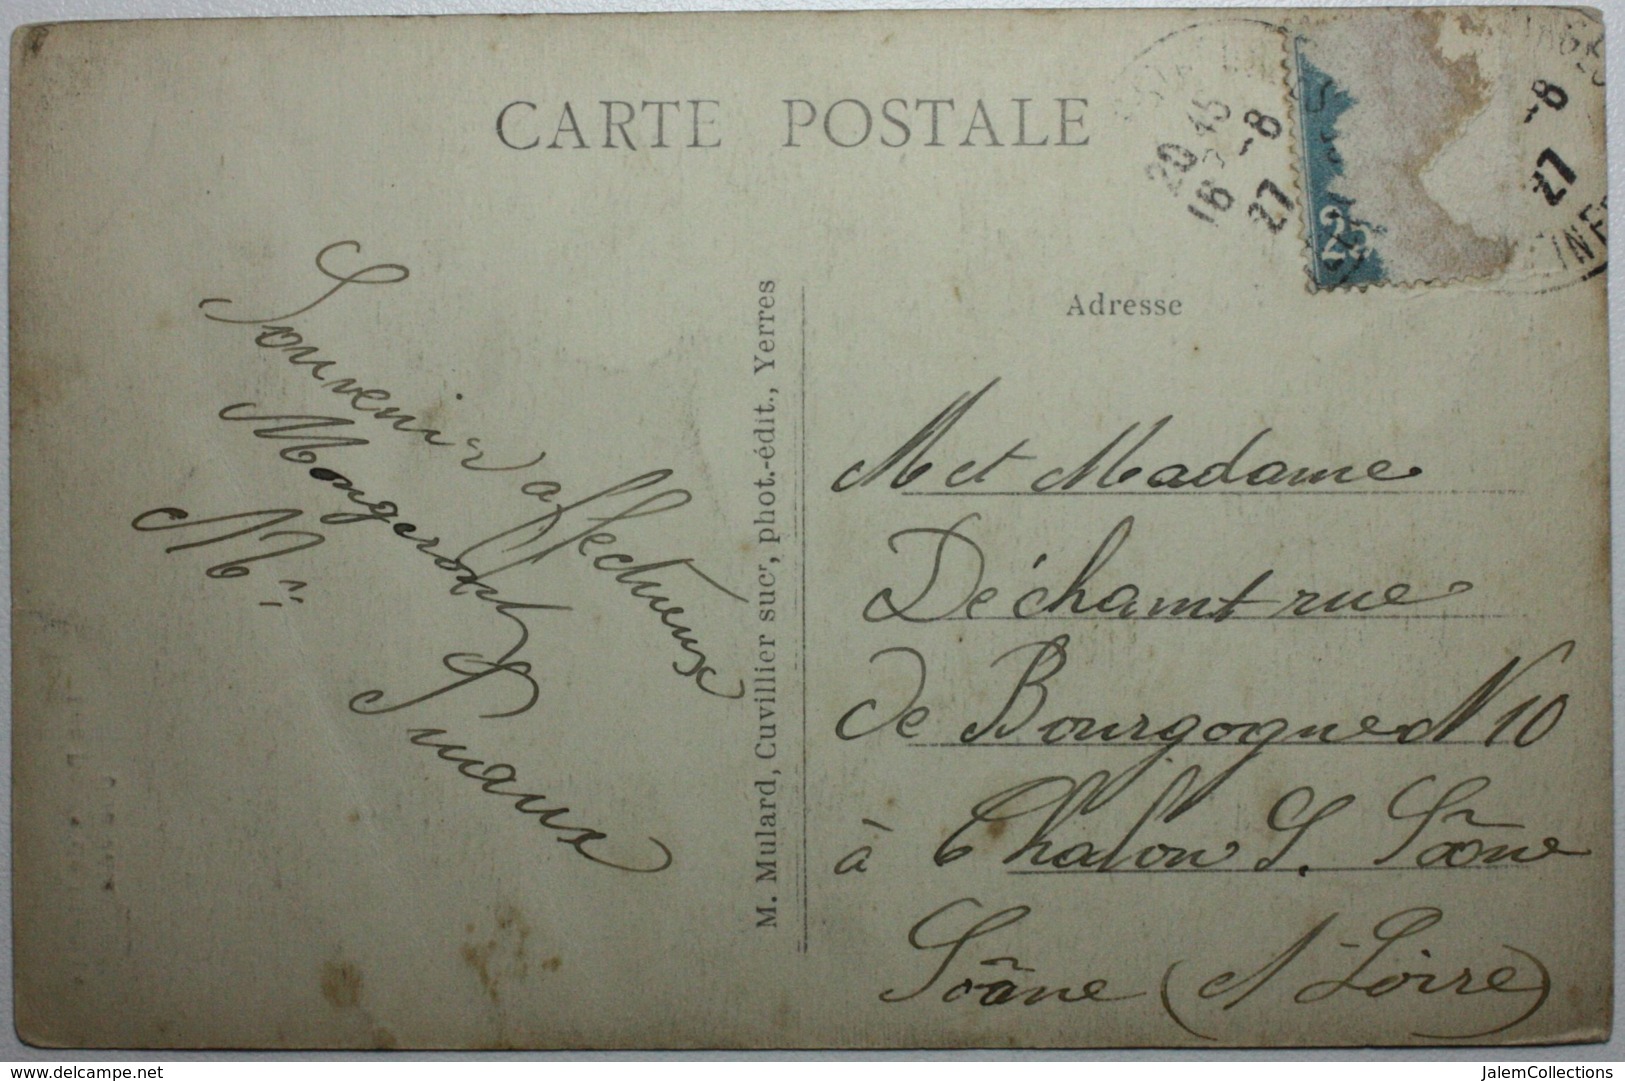 CARTE POSTALE
20 45
16 - 8
27
- 8
27
2
Adresse
Souvenir affectueux
Mongerolet
Mr
M. Mulard, Cuvillier sucr, phot.-édit., Yerres
M et Madame
Déchamt rue
de Bourgogne N 10
à Chalon S. Sãone
Sãone (et Loire)
www.delcampe.net
JalemCollections